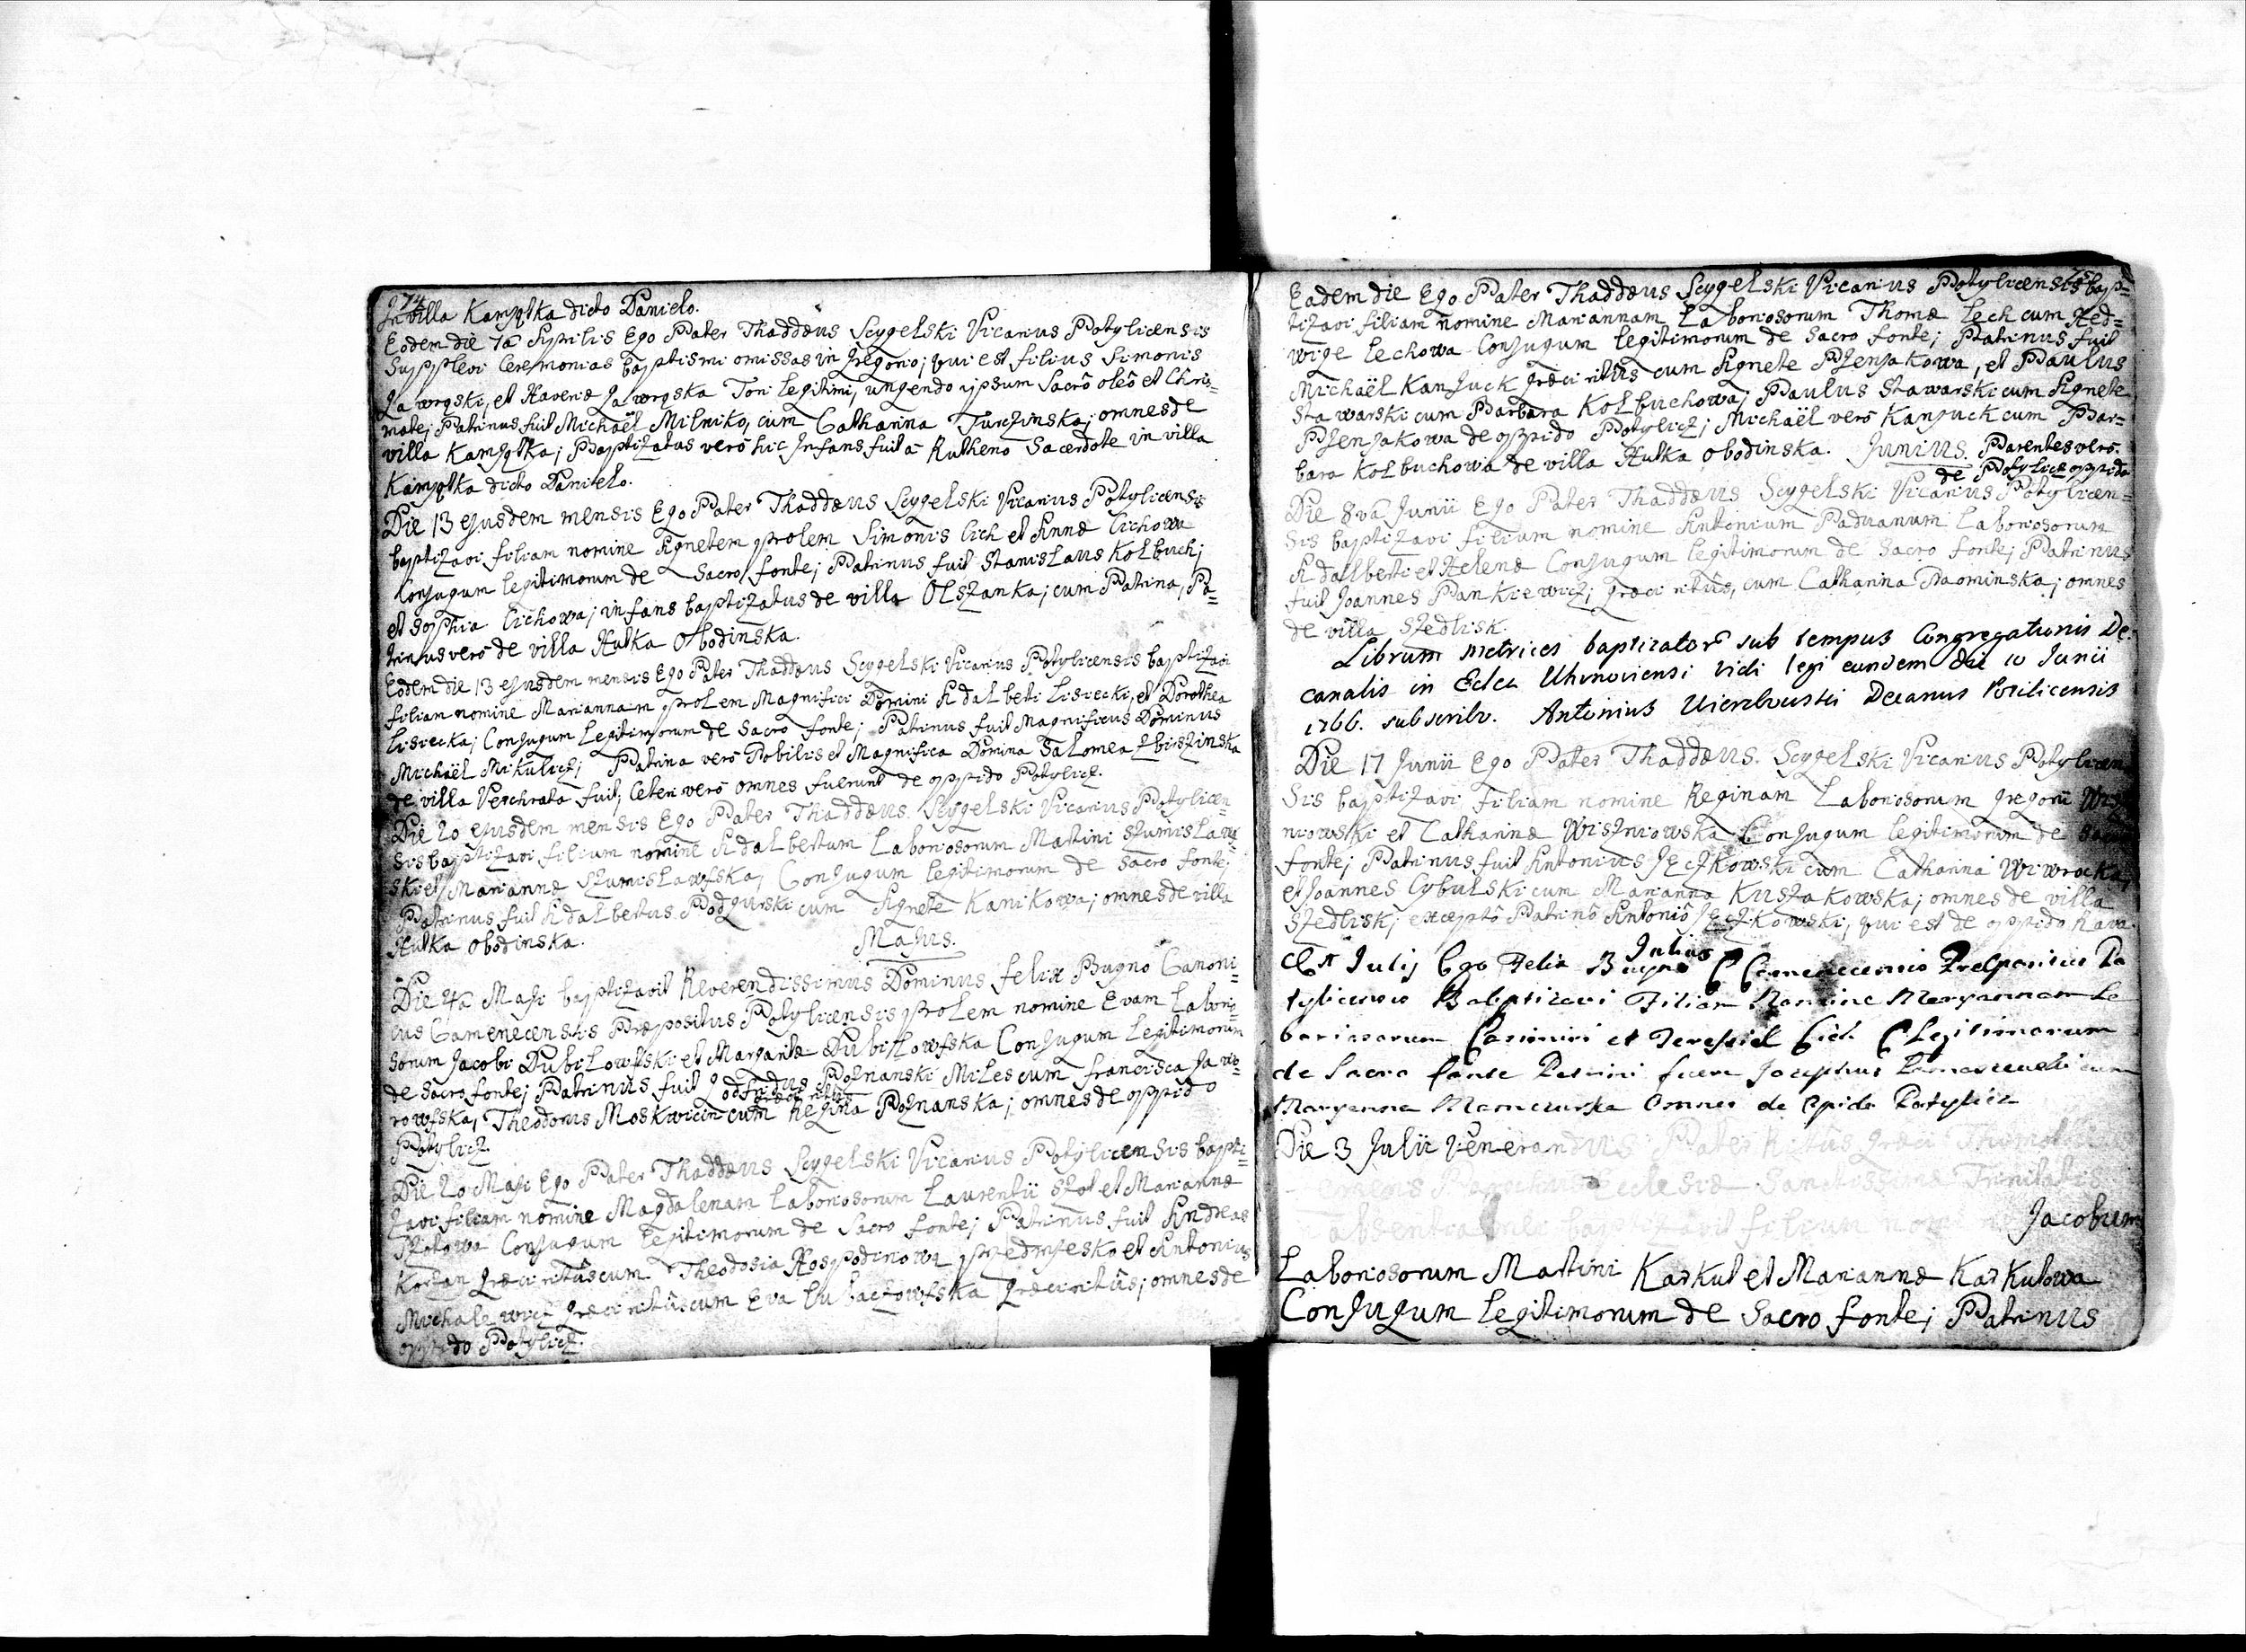 74
In villa Kamąłka dicto Danielo.
Eodem die 7a Aprilis Ego Pater Thaddæus Scygelski Vicarius Potylicensis
Supplevi Ceremonias baptismi omissas in Gregorio; qui est filius Simonis
Jaworski, et Jaworska Tori Legitimi, ungendo ipsum Sacrô oleô et Chris=
mate; Patrinus fuit Michaël Milniko, cum Catharina Turczinska; omnes de
villa Kamąłka; Baptizatus verô hic Infans fuit â Rutheno Sacerdote in villa
Kamąłka dicto Danielo.
Die 13 ejusdem mensis Ego Pater Thaddæus Scygelski Vicarius Potylicensis
baptizavi filiam nomine Agnetem prolem Simonis Cich et Annæ Cichowa
Conjugum legitimorum de Sacro fonte; Patrinus fuit Stanislaus Kołbuch;
et Sophia Cichowa; infans baptizatus de villa Olszanka; cum Patrina, Pa=
trinus verô de villa Hutka Obodinska.
Eodem die 13 ejusdem mensis Ego Pater Thaddæus Scygelski Vicarius Potylicensis baptizavi
filiam nomine Mariannam prolem Magnifici Domini Adalberti Lisiecki, et Dorothea
Lisiecka; Conjugum Legitimorum de Sacro fonte; Patrinus fuit Magnificus Dominus
Michaël Mikulicz; Patrina verô Nobilis et Magnifica Domina Salomea Zbirzinska
de villa Verchrata fuit, Ceteri verô omnes fuerunt de oppido Potylicz.
Die 20 ejusdem mensis Ego Pater Thaddæus Scygelski Vicarius Potylicen=
sis baptizavi filium nomine Adalbertum Laboriosorum Martini Szumislaw=
ski et Mariannæ Szumislawska, Conjugum legitimorum de Sacro fonte;
Patrinus fuit Adalbertus Podgurski cum Agnete Kanikowa; omnes de villa
Hutka Obodinska.
Majus.
Die 4a Maji baptizavit Reverendissimus Dominus Felix Bugno Canoni=
cus Camenecensis Præpositus Potylicensis prolem nomine Evam Laborio=
sorum Jacobi Dubilowski et Margaritæ Dubilowska Conjugum Legitimorum
de Sacro fonte; Patrinus fuit Godfridus Poznanski Miles cum Francisca Jawo=
græci ritûs
rowska, Theodorus Moskwicin cum Regina Poznanska; omnes de oppido
Potylicz.
Die 20 Maji Ego Pater Thaddæus Scygelski Vicarius Potylicensis bapti=
zavi filiam nomine Magdalenam Laboriosorum Laurentii Szot et Mariannæ
Szotowa Conjugum Legitimorum de Sacro fonte; Patrinus fuit Andreas
Korzan græci ritûs cum Theodosia Hospodinowa et Antonius
Michalewicz græci ritûs cum Eva Lubaczowska græci ritûs; omnes de
oppido Potylicz.
75
Eadem die Ego Pater Thaddæus Scygelski Vicarius Potylicensis bap=
tizavi filiam nomine Mariannam Laboriosorum Thomæ Lech cum Hed=
wige Lechowa Conjugum legitimorum de Sacro fonte; Patrinus fuit
Michaël Kanjuck græci ritûs cum Agnete Pzenjakowa, et Paulus
Stawarski cum Barbara Kołbuchowa; Paulus Stawarski cum Agnete
Pzenjakowa de oppido Potylicz; Michaël verô Kanjuck cum Bar=
bara Kołbuchowa de villa Hutka Obodinska. Junius. Parentes verô
de Potylicz oppido
Die 8va Junii Ego Pater Thaddæus Scygelski Vicarius Potylicen=
sis baptizavi filium nomine Antonium Paduanum Laboriosorum
Adalberti et Helenæ Conjugum legitimorum de Sacro fonte; Patrinus
fuit Joannes Pankiewicz; græci ritûs, cum Catharina Naominska; omnes
de villa Szedlisk.
Librum metrices baptizatorũ sub tempus Congregationis De=
canalis in Eccła Uhnoviensi vidi legi eundem die 10 Junii
1766. subscribo. Antonius Decanus Potilicensis
Die 17 Junii Ego Pater Thaddæus Scygelski Vicarius Potylicen
sis baptizavi filiam nomine Reginam Laboriosorum Gregorii Wisz
niowski et Catharinæ Wiszniowska Conjugum legitimorum de Sacro
fonte; Patrinus fuit Antonius Jeczkowski cum Catharina Wiwrocka;
et Joannes Cybulski cum Marianna Kuszakowska; omnes de villa
Szedlisk; exceptô Patrinô Antoniô Jeczkowski, qui est de oppido Rava.
Julius
Julij Ego Felix Bugno C Camenecensis Præpositus Po
tylicensis Babptizavi Filiam Nomine Maryannam La
boriosorum Casimiri et Teressiæ Cich C Legitimorum
de Sacro fonte Patrini fuere Josephus cum
Maryanna Omnes de Opido Potylicz
Die 3 Julii Venerandus Pater Ritûs græci
Parochus Ecclesiæ Sanctissimæ Trinitatis
absentia baptizavit filium nomine Jacobum
Laboriosorum Martini Karkut et Mariannæ Karkutowa
Conjugum legitimorum de Sacro fonte; Patrinus